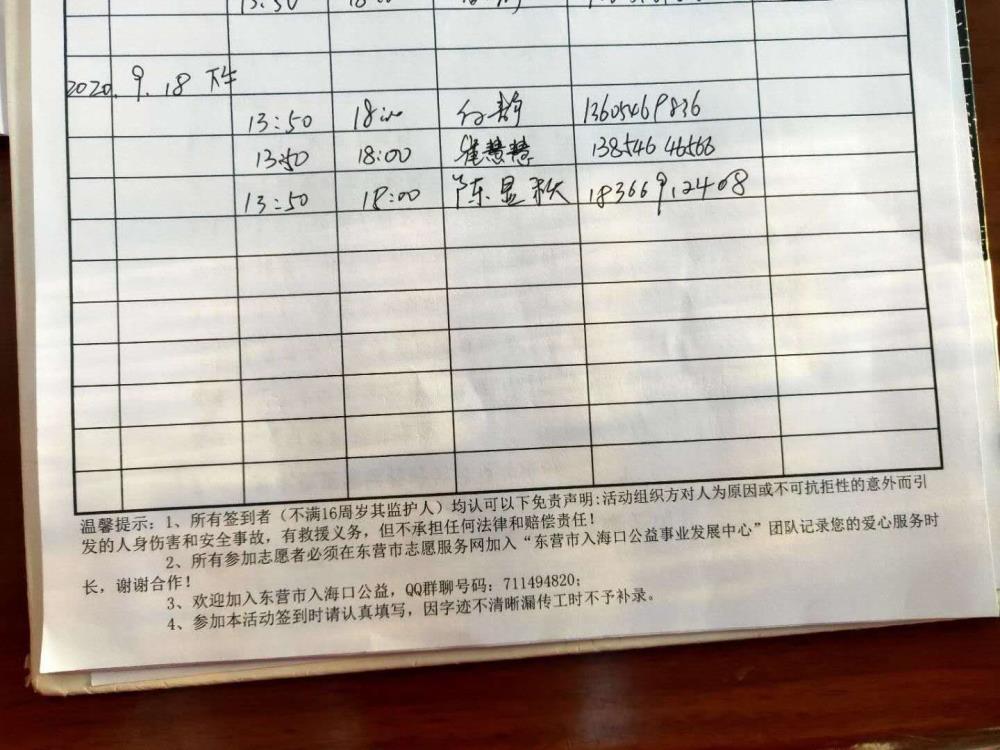 13:50
2020.9.18 下午
13:50 18:00 13605469836
13:50 18:00 崔慧慧 13854646566
13:50 18:00 陈显秋 18366912408
温馨提示：1、所有签到者（不满16周岁其监护人）均认可以下免责声明:活动组织方对人为原因或不可抗拒性的意外而引
发的人身伤害和安全事故，有救援义务，但不承担任何法律和赔偿责任！
2、所有参加志愿者必须在东营市志愿服务网加入“东营市入海口公益事业发展中心”团队记录您的爱心服务时
长，谢谢合作！
3、欢迎加入东营市入海口公益，QQ群聊号码：711494820；
4、参加本活动签到时请认真填写，因字迹不清晰漏传工时不予补录。